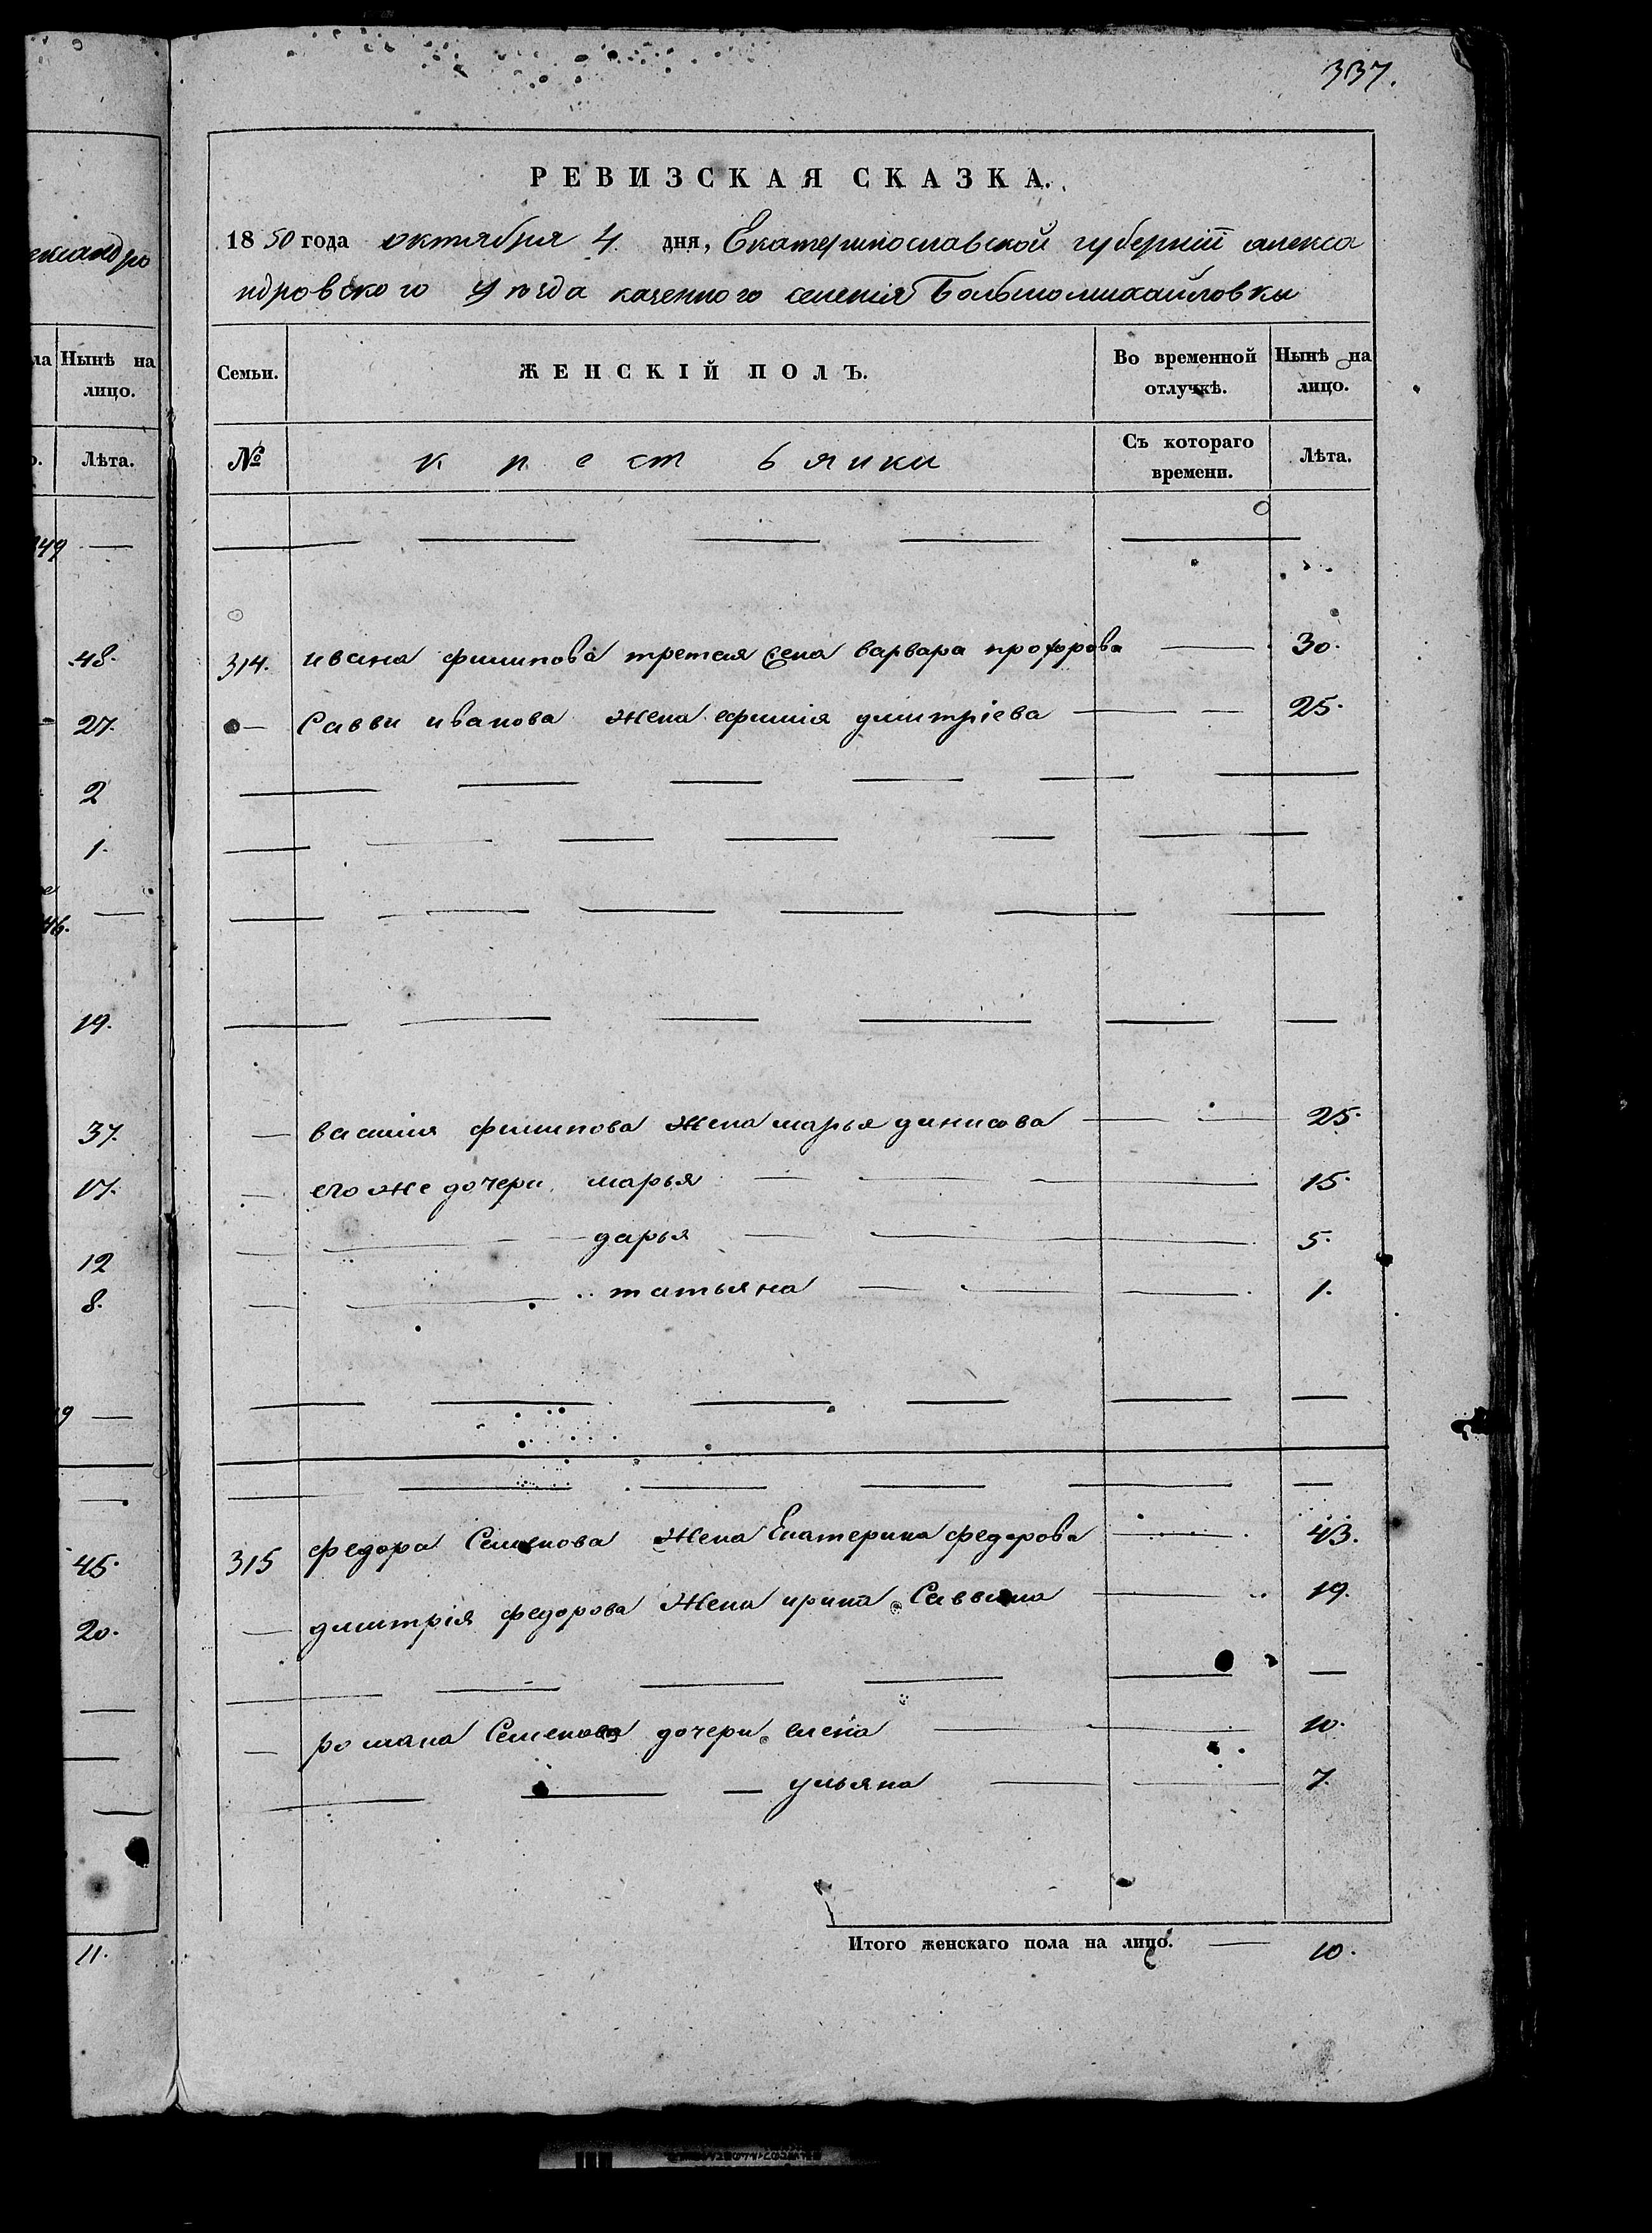 337.
РЕВИЗСКАЯ СКАЗКА.
1850 года октября 4 дня, Екатеринославской губерніи алекса
ндровского уѣзда казенного селенія Большомихайловки
ександро
ла Нынѣ на лицо.
Лѣта.
Семьи. ЖЕНСКІЙ ПОЛЪ. Во временной отлучкѣ. Нынѣ на лицо.
№ крестьянки Съ котораго времени. Лѣта.
49 —
48. 314. ивана филипова третая жена варвара прохорова — 30.
27. — Савви иванова жена ефимія дмитріева — 25.
2
1.
46. —
19.
37. — василия филипова жена марья данисова — 25.
17. — его же дочери марья — 15.
12 — дарья — 5.
8. — татьяна — 1.
9 —
45. 315 федора Семенова жена Екатерина федорова — 43.
20. — дмитрія федорова жена ирина Саввина — 19.
— романа Семенова дочери елена — 10.
— ульяна — 7.
11. Итого женскаго пола на лицо. — 10.